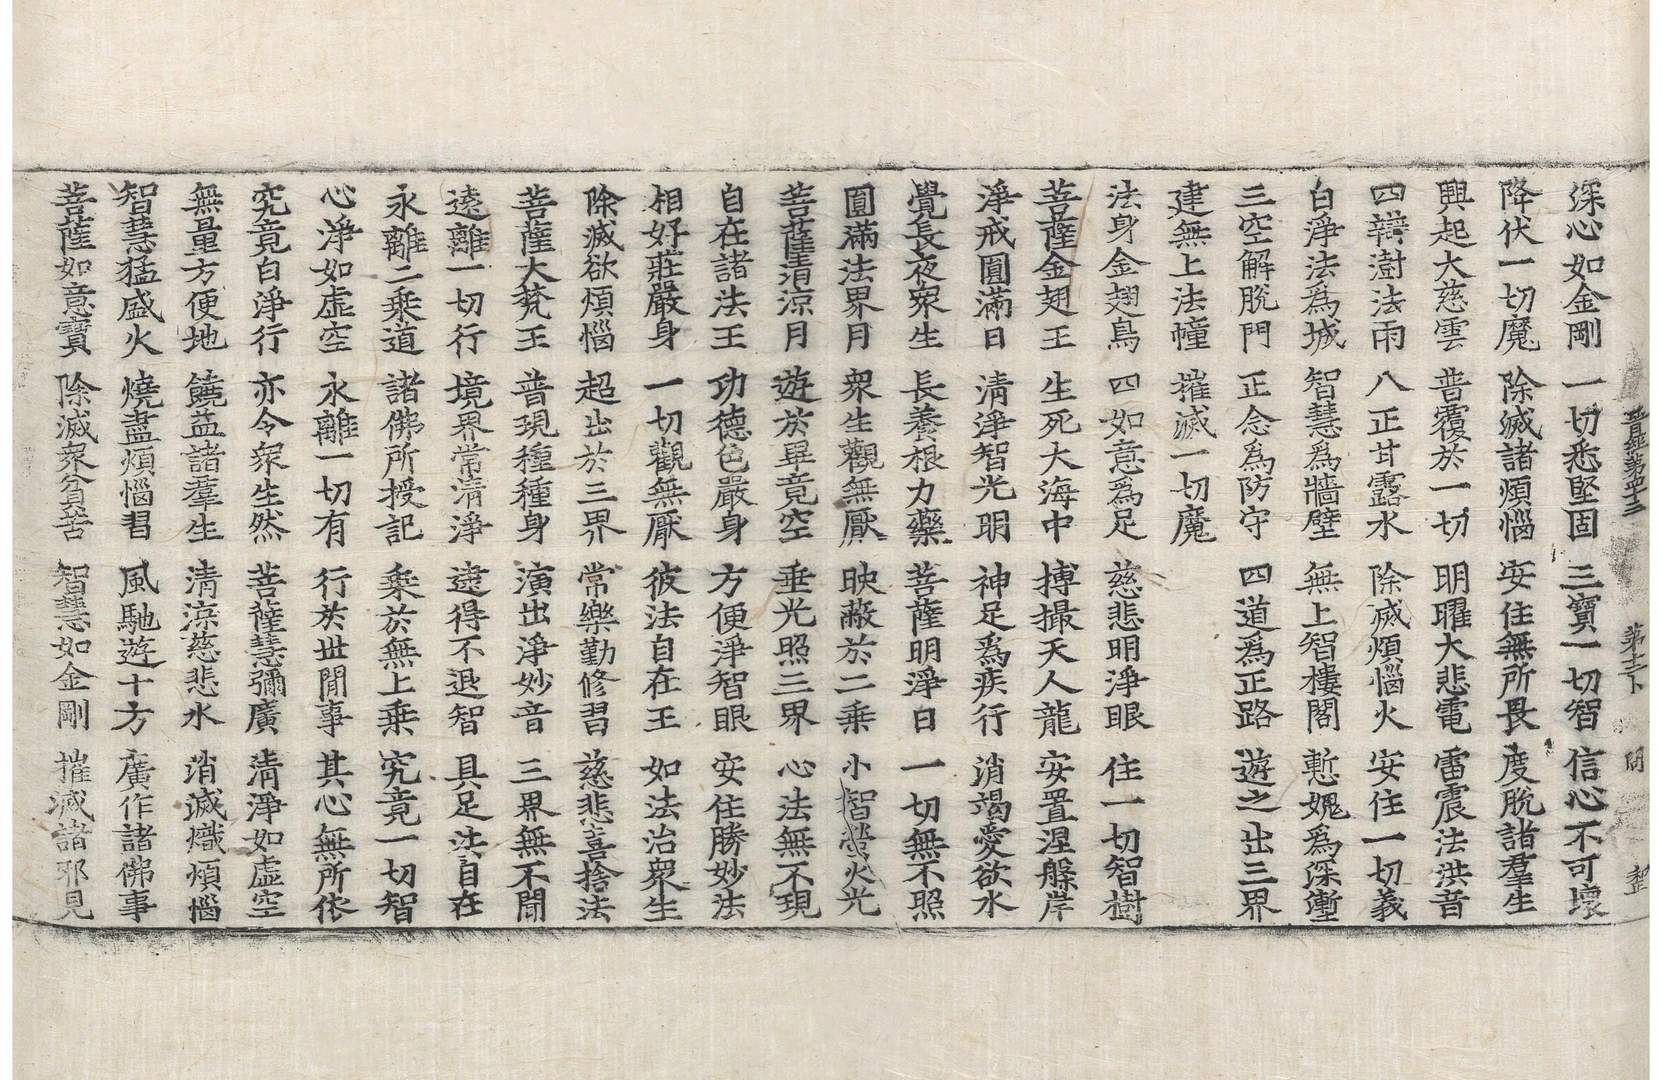 晉經第四十三 第十二卜 周 𡐦
深心如金剛 一切悉堅固 三寶一切智 信心不可壞
降伏一切魔 除滅諸煩惱 安住無所畏 度脫諸羣生
興起大慈雲 普覆於一切 明曜大悲電 雷震法洪音
四辯澍法雨 八正甘露水 除滅煩惱火 安住一切義
白淨法爲城 智慧爲牆壁 無上智樓閣 慙愧爲深塹
三空解脫門 正念爲防守 四道爲正路 遊之出三界
建無上法幢 摧滅一切魔
法身金翅鳥 四如意爲足 慈悲明淨眼 住一切智樹
菩薩金翅王 生死大海中 搏撮天人龍 安置涅槃岸
淨戒圓滿日 清淨智光明 神足爲疾行 消竭愛欲水
覺長夜衆生 長養根力藥 菩薩明淨日 一切無不照
圓滿法界月 衆生觀無厭 映蔽於二乘 小智螢火光
菩薩清涼月 遊於畢竟空 垂光照三界 心法無不現
自在諸法王 功德色嚴身 方便淨智眼 安住勝妙法
相好莊嚴身 一切觀無厭 彼法自在王 如法治衆生
除滅欲煩惱 超出於三界 常樂勤修習 慈悲喜捨法
菩薩大梵王 普現種種身 演出淨妙音 三界無不聞
遠離一切行 境界常清淨 逮得不退智 具足法自在
永離二乘道 諸佛所授記 乘於無上乘 究竟一切智
心淨如虛空 永離一切有 行於世閒事 其心無所依
究竟白淨行 亦令衆生然 菩薩慧彌廣 清淨如虛空
無量方便地 饒益諸羣生 清涼慈悲水 消滅熾煩惱
智慧猛盛火 燒盡煩惱習 風馳遊十方 廣作諸佛事
菩薩如意寶 除滅衆貧苦 智慧如金剛 摧滅諸邪見